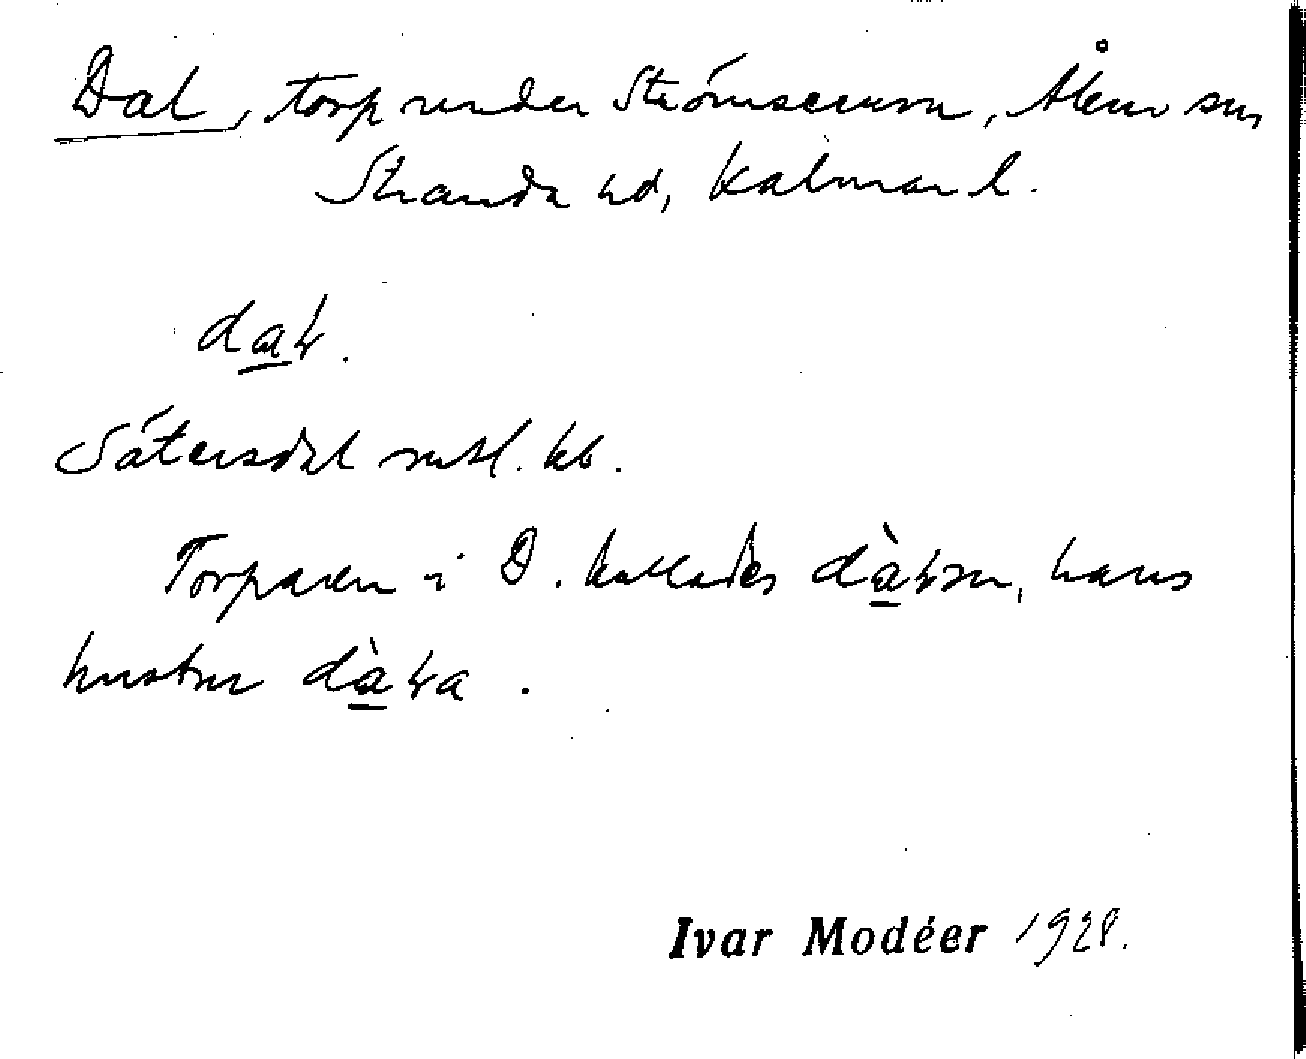 Dal, torp under Strömserum, Ålem sn,
Stranda hd, Kalmar l.
daɫ.
Sätersdal mtl. kb.
Torparen i D. kallades dàɫən, hans
hustru dàɫa.
Ivar Modéer 1928.